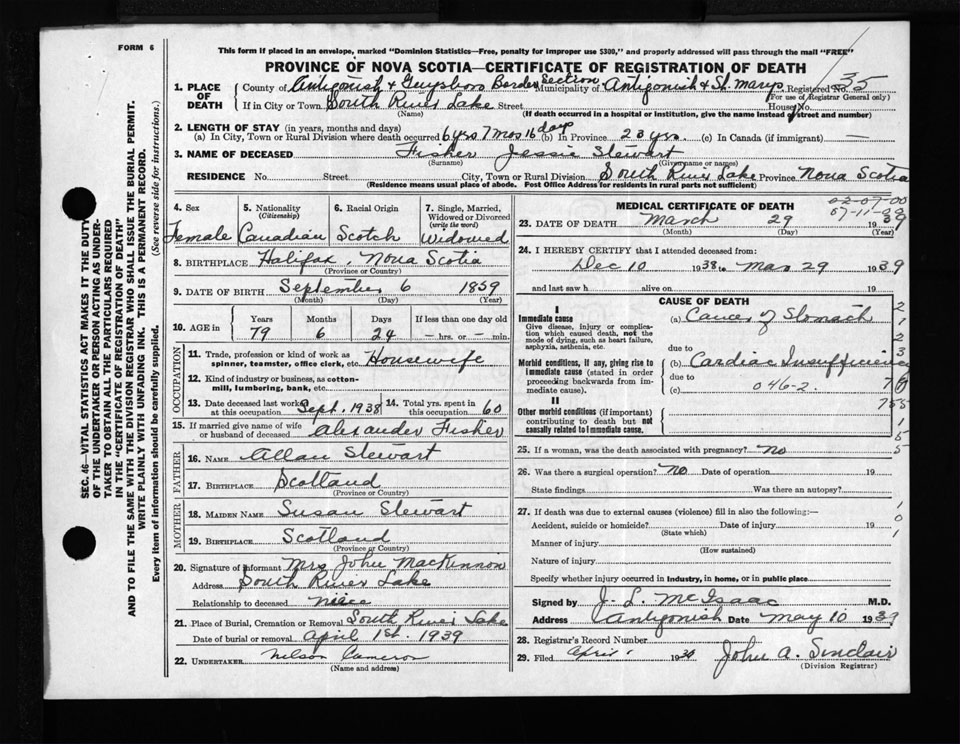 FORM 6
This form if placed in an envelope, marked "Dominion Statistics—Free, penalty for improper use $300," and properly addressed will pass through the mail "FREE"
PROVINCE OF NOVA SCOTIA—CERTIFICATE OF REGISTRATION OF DEATH
SEC. 46—VITAL STATISTICS ACT MAKES IT THE DUTY
OF THE UNDERTAKER OR PERSON ACTING AS UNDER-
TAKER TO OBTAIN ALL THE PARTICULARS REQUIRED
IN THE "CERTIFICATE OF REGISTRATION OF DEATH"
AND TO FILE THE SAME WITH THE DIVISION REGISTRAR WHO SHALL ISSUE THE BURIAL PERMIT.
WRITE PLAINLY WITH UNFADING INK. THIS IS A PERMANENT RECORD.
Every item of information should be carefully supplied. (See reverse side for instructions.)
1. PLACE OF DEATH
County of Antigonish & Guysboro Border Section Municipality of Antigonish & St. Marys Registered No. 35
(For use of Registrar General only)
If in City or Town South River Lake Street House No.
(Name) (If death occurred in a hospital or institution, give the name instead of street and number)
2. LENGTH OF STAY (in years, months and days)
(a) In City, Town or Rural Division where death occurred 6 yrs 7 mos 16 days (b) In Province 23 yrs. (c) In Canada (if immigrant) —
3. NAME OF DECEASED Fisher Jessie Stewart
(Surname) (Given name or names)
RESIDENCE No. Street City, Town or Rural Division South River Lake Province Nova Scotia
(Residence means usual place of abode. Post Office Address for residents in rural parts not sufficient)
4. Sex Female
5. Nationality (Citizenship) Canadian
6. Racial Origin Scotch
7. Single, Married, Widowed or Divorced (write the word) Widowed
8. BIRTHPLACE Halifax, Nova Scotia
(Province or Country)
9. DATE OF BIRTH September 6 1859
(Month) (Day) (Year)
10. AGE in Years Months Days If less than one day old
79 6 24 — hrs. or — min.
OCCUPATION
11. Trade, profession or kind of work as spinner, teamster, office clerk, etc. Housewife
12. Kind of industry or business, as cotton-mill, lumbering, bank, etc.
13. Date deceased last worked at this occupation Sept. 1938 14. Total yrs. spent in this occupation 60
15. If married give name of wife or husband of deceased Alexander Fisher
FATHER
16. NAME Allan Stewart
17. BIRTHPLACE Scotland
(Province or Country)
MOTHER
18. MAIDEN NAME Susan Stewart
19. BIRTHPLACE Scotland
(Province or Country)
20. Signature of informant Mrs John MacKinnon
Address South River Lake
Relationship to deceased niece
21. Place of Burial, Cremation or Removal South River Lake
Date of burial or removal April 1st. 1939
22. UNDERTAKER Nelson Cameron
(Name and address)
MEDICAL CERTIFICATE OF DEATH
23. DATE OF DEATH March 29 1939
(Month) (Day) (Year)
24. I HEREBY CERTIFY that I attended deceased from:
Dec 10 1938 to Mar 29 1939
and last saw h alive on 19
CAUSE OF DEATH
I
Immediate cause
Give disease, injury or complication which caused death, not the mode of dying, such as heart failure, asphyxia, asthenia, etc.
(a) Cancer of Stomach
due to
Morbid conditions, if any, giving rise to immediate cause (stated in order proceeding backwards from immediate cause).
(b) Cardiac Insufficiency
due to
(c) 046-2.
II
Other morbid conditions (if important) contributing to death but not causally related to immediate cause.
25. If a woman, was the death associated with pregnancy? No
26. Was there a surgical operation? No Date of operation 19
State findings Was there an autopsy?
27. If death was due to external causes (violence) fill in also the following:—
Accident, suicide or homicide? Date of injury 19
(State which)
Manner of injury
(How sustained)
Nature of injury
Specify whether injury occurred in industry, in home, or in public place
Signed by J. L. McIsaac M.D.
Address Antigonish Date May 10 1939
28. Registrar's Record Number
29. Filed April 1939 John A. Sinclair
(Division Registrar)